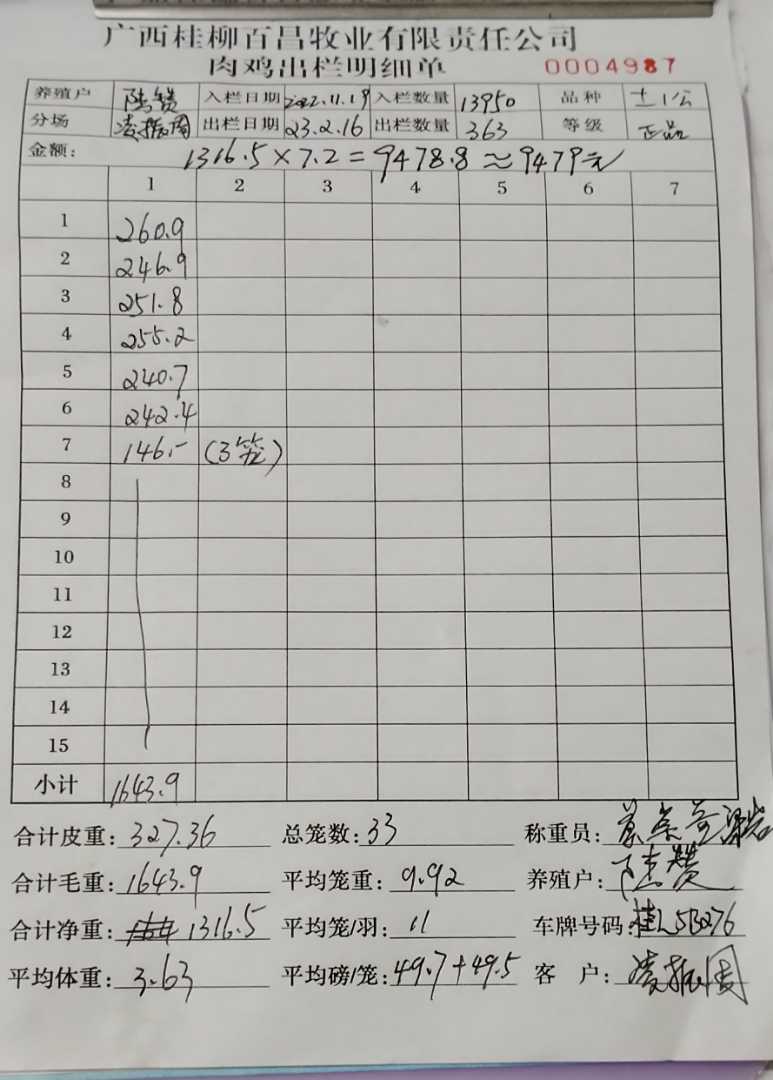 广西桂柳百昌牧业有限责任公司
肉鸡出栏明细单 0004987
养殖户 陆赞 入栏日期 2022.11.19 入栏数量 13950 品种 土1公
分场 凌振周 出栏日期 23.2.16 出栏数量 363 等级 正品
金额: 1316.5×7.2=9478.8≈9479元
1 2 3 4 5 6 7
1 260.9
2 246.9
3 251.8
4 255.2
5 240.7
6 242.4
7 146.- (3笼)
8
9
10
11
12
13
14
15
小计 1643.9
合计皮重: 327.36 总笼数: 33 称重员:
合计毛重: 1643.9 平均笼重: 9.92 养殖户: 陆赞
合计净重: 1316.5 平均笼/羽: 11 车牌号码: 桂L5B276
平均体重: 3.63 平均磅/笼: 49.7+49.5 客 户: 凌振周